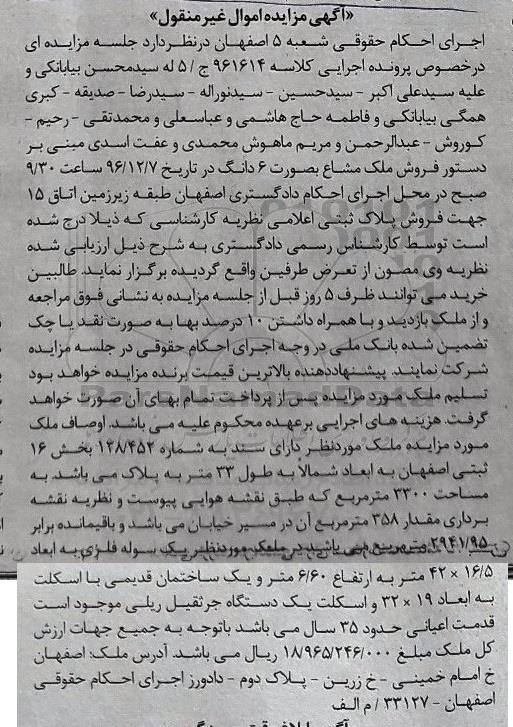 «آگهی مزایده اموال غیر منقول»
اجرای احکام حقوقی شعبه ۵ اصفهان در نظر دارد جلسه مزایده ای
در خصوص پرونده اجرایی کلاسه ۹۶۱۶۱۴ ج / ۵ له سید محسن بیابانکی و
علیه سید علی اکبر – سید حسین – سید نوراله – سید رضا – صدیقه – کبری
همگی بیابانکی و فاطمه حاج هاشمی و عباسعلی و محمد تقی – رحیم –
کوروش – عبدالرحمن و مریم ماهوش محمدی و عفت اسدی مبنی بر
دستور فروش ملک مشاع بصورت ۶ دانگ در تاریخ ۹۶/۱۲/۷ ساعت ۹/۳۰
صبح در محل اجرای احکام دادگستری اصفهان طبقه زیرزمین اتاق ۱۵
جهت فروش پلاک ثبتی اعلامی نظریه کارشناسی که ذیلا درج شده
است توسط کارشناس رسمی دادگستری به شرح ذیل ارزیابی شده
نظریه وی مصون از تعرض طرفین واقع گردیده برگزار نماید. طالبین
خرید می توانند ظرف ۵ روز قبل از جلسه مزایده به نشانی فوق مراجعه
و از ملک بازدید و با همراه داشتن ۱۰ درصد بها به صورت نقد یا چک
تضمین شده بانک ملی در وجه اجرای احکام حقوقی در جلسه مزایده
شرکت نمایند. پیشنهاددهنده بالاترین قیمت برنده مزایده خواهد بود
تسلیم ملک مورد مزایده پس از پرداخت تمام بهای آن صورت خواهد
گرفت. هزینه های اجرایی بر عهده محکوم علیه می باشد. اوصاف ملک
مورد مزایده ملک مورد نظر دارای سند به شماره ۱۲۸/۴۵۲ بخش ۱۶
ثبتی اصفهان به ابعاد شمالا به طول ۳۳ متر به پلاک می باشد. به
مساحت ۳۳۰۰ مترمربع که طبق نقشه هوایی پیوست و نظریه نقشه
برداری مقدار ۳۵۸ مترمربع آن در مسیر خیابان می باشد و باقیمانده برابر
۲۹۴۱/۹۵ مترمربع می باشد در ملک مورد نظر یک سوله فلزی به ابعاد
۱۶/۵ × ۴۲ متر به ارتفاع ۶/۶۰ متر و یک ساختمان قدیمی با اسکلت
به ابعاد ۱۹ × ۳۲ و اسکلت یک دستگاه جرثقیل ریلی موجود است
قدمت اعیانی حدود ۳۵ سال می باشد باتوجه به جمیع جهات ارزش
کل ملک مبلغ ۱۸/۹۶۵/۲۴۶/۰۰۰ ریال می باشد. آدرس ملک: اصفهان
خ امام خمینی – خ زرین – پلاک دوم – دادورز اجرای احکام حقوقی
اصفهان – ۳۳۱۲۷ / م الف